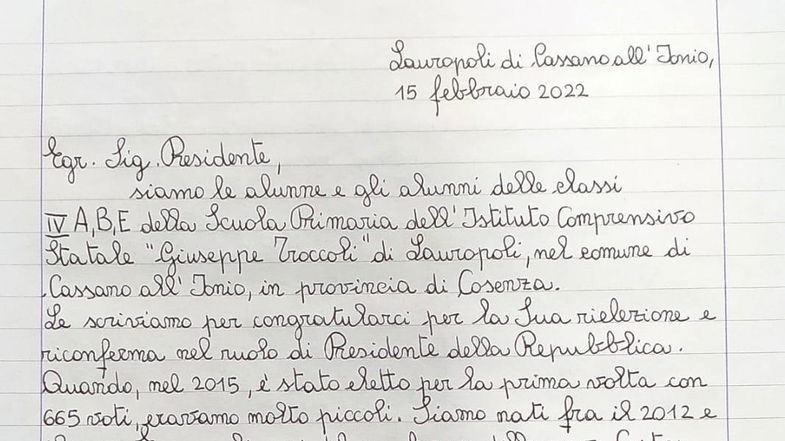 Lauropoli di Cassano all'Ionio,
15 febbraio 2022
Egr. Sig. Presidente,
siamo le alunne e gli alunni delle classi
IV A,B,E della Scuola Primaria dell'Istituto Comprensivo
Statale "Giuseppe Troccoli" di Lauropoli, nel comune di
Cassano all'Ionio, in provincia di Cosenza.
Le scriviamo per congratularci per la Sua rielezione e
riconferma nel ruolo di Presidente della Repubblica.
Quando, nel 2015, è stato eletto per la prima volta con
665 voti, eravamo molto piccoli. Siamo nati fra il 2012 e